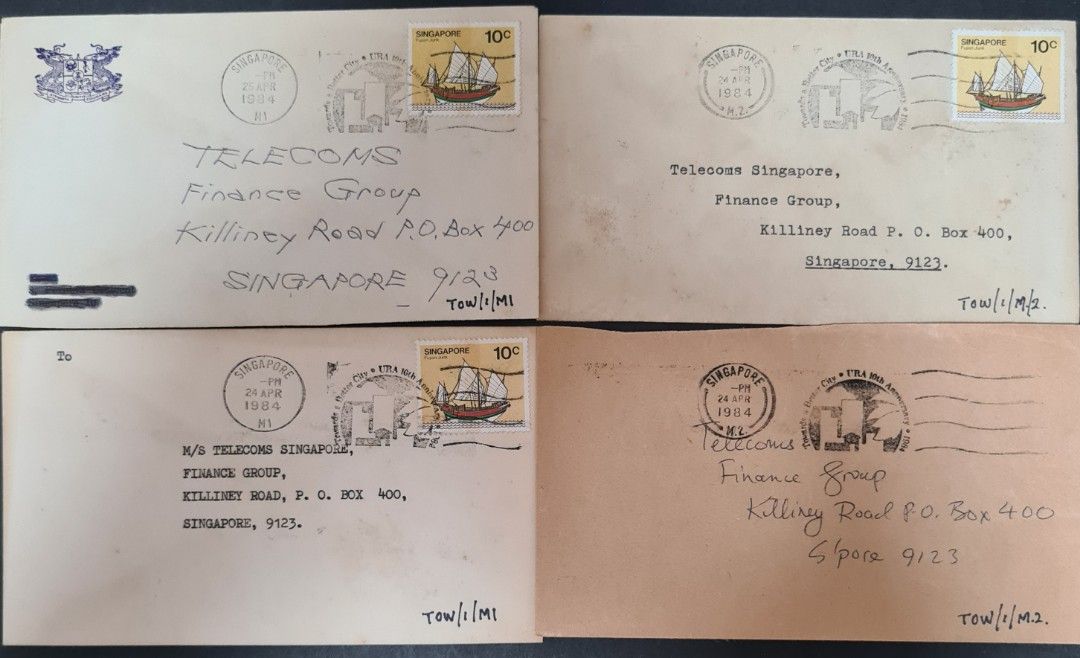 SINGAPORE
-PM
25 APR
1984
M1
Towards a Better City • URA 10th
SINGAPORE 10c
Fujian Junk
TELECOMS
Finance Group
Killiney Road P.O. Box 400
SINGAPORE 9123
TOW/1/M1
SINGAPORE
-PM
24 APR
1984
M.2.
Towards a Better City • URA 10th Anniversary • 1984
SINGAPORE 10c
Fujian Junk
Telecoms Singapore,
Finance Group,
Killiney Road P. O. Box 400,
Singapore, 9123.
TOW/1/M/2.
To
SINGAPORE
-PM
24 APR
1984
M1
Towards a Better City • URA 10th Anniversary
SINGAPORE 10c
Fujian Junk
M/S TELECOMS SINGAPORE,
FINANCE GROUP,
KILLINEY ROAD, P. O. BOX 400,
SINGAPORE, 9123.
TOW/1/M1
SINGAPORE
-PM
24 APR
1984
M.2.
Towards a Better City • URA 10th Anniversary • 1984
Telecoms
Finance Group
Killiney Road P.O. Box 400
S'pore 9123
TOW/1/M.2.